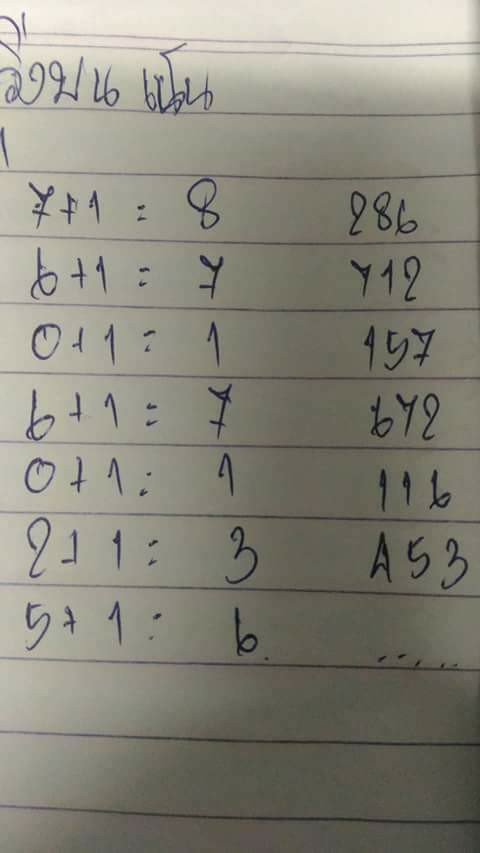 สิ่งบน เน้น
7+1 = 8 286
6+1 = 7 712
0+1 = 1 157
6+1 = 7 672
0+1 = 1 116
2+1 = 3 453
5+1 = 6. .....